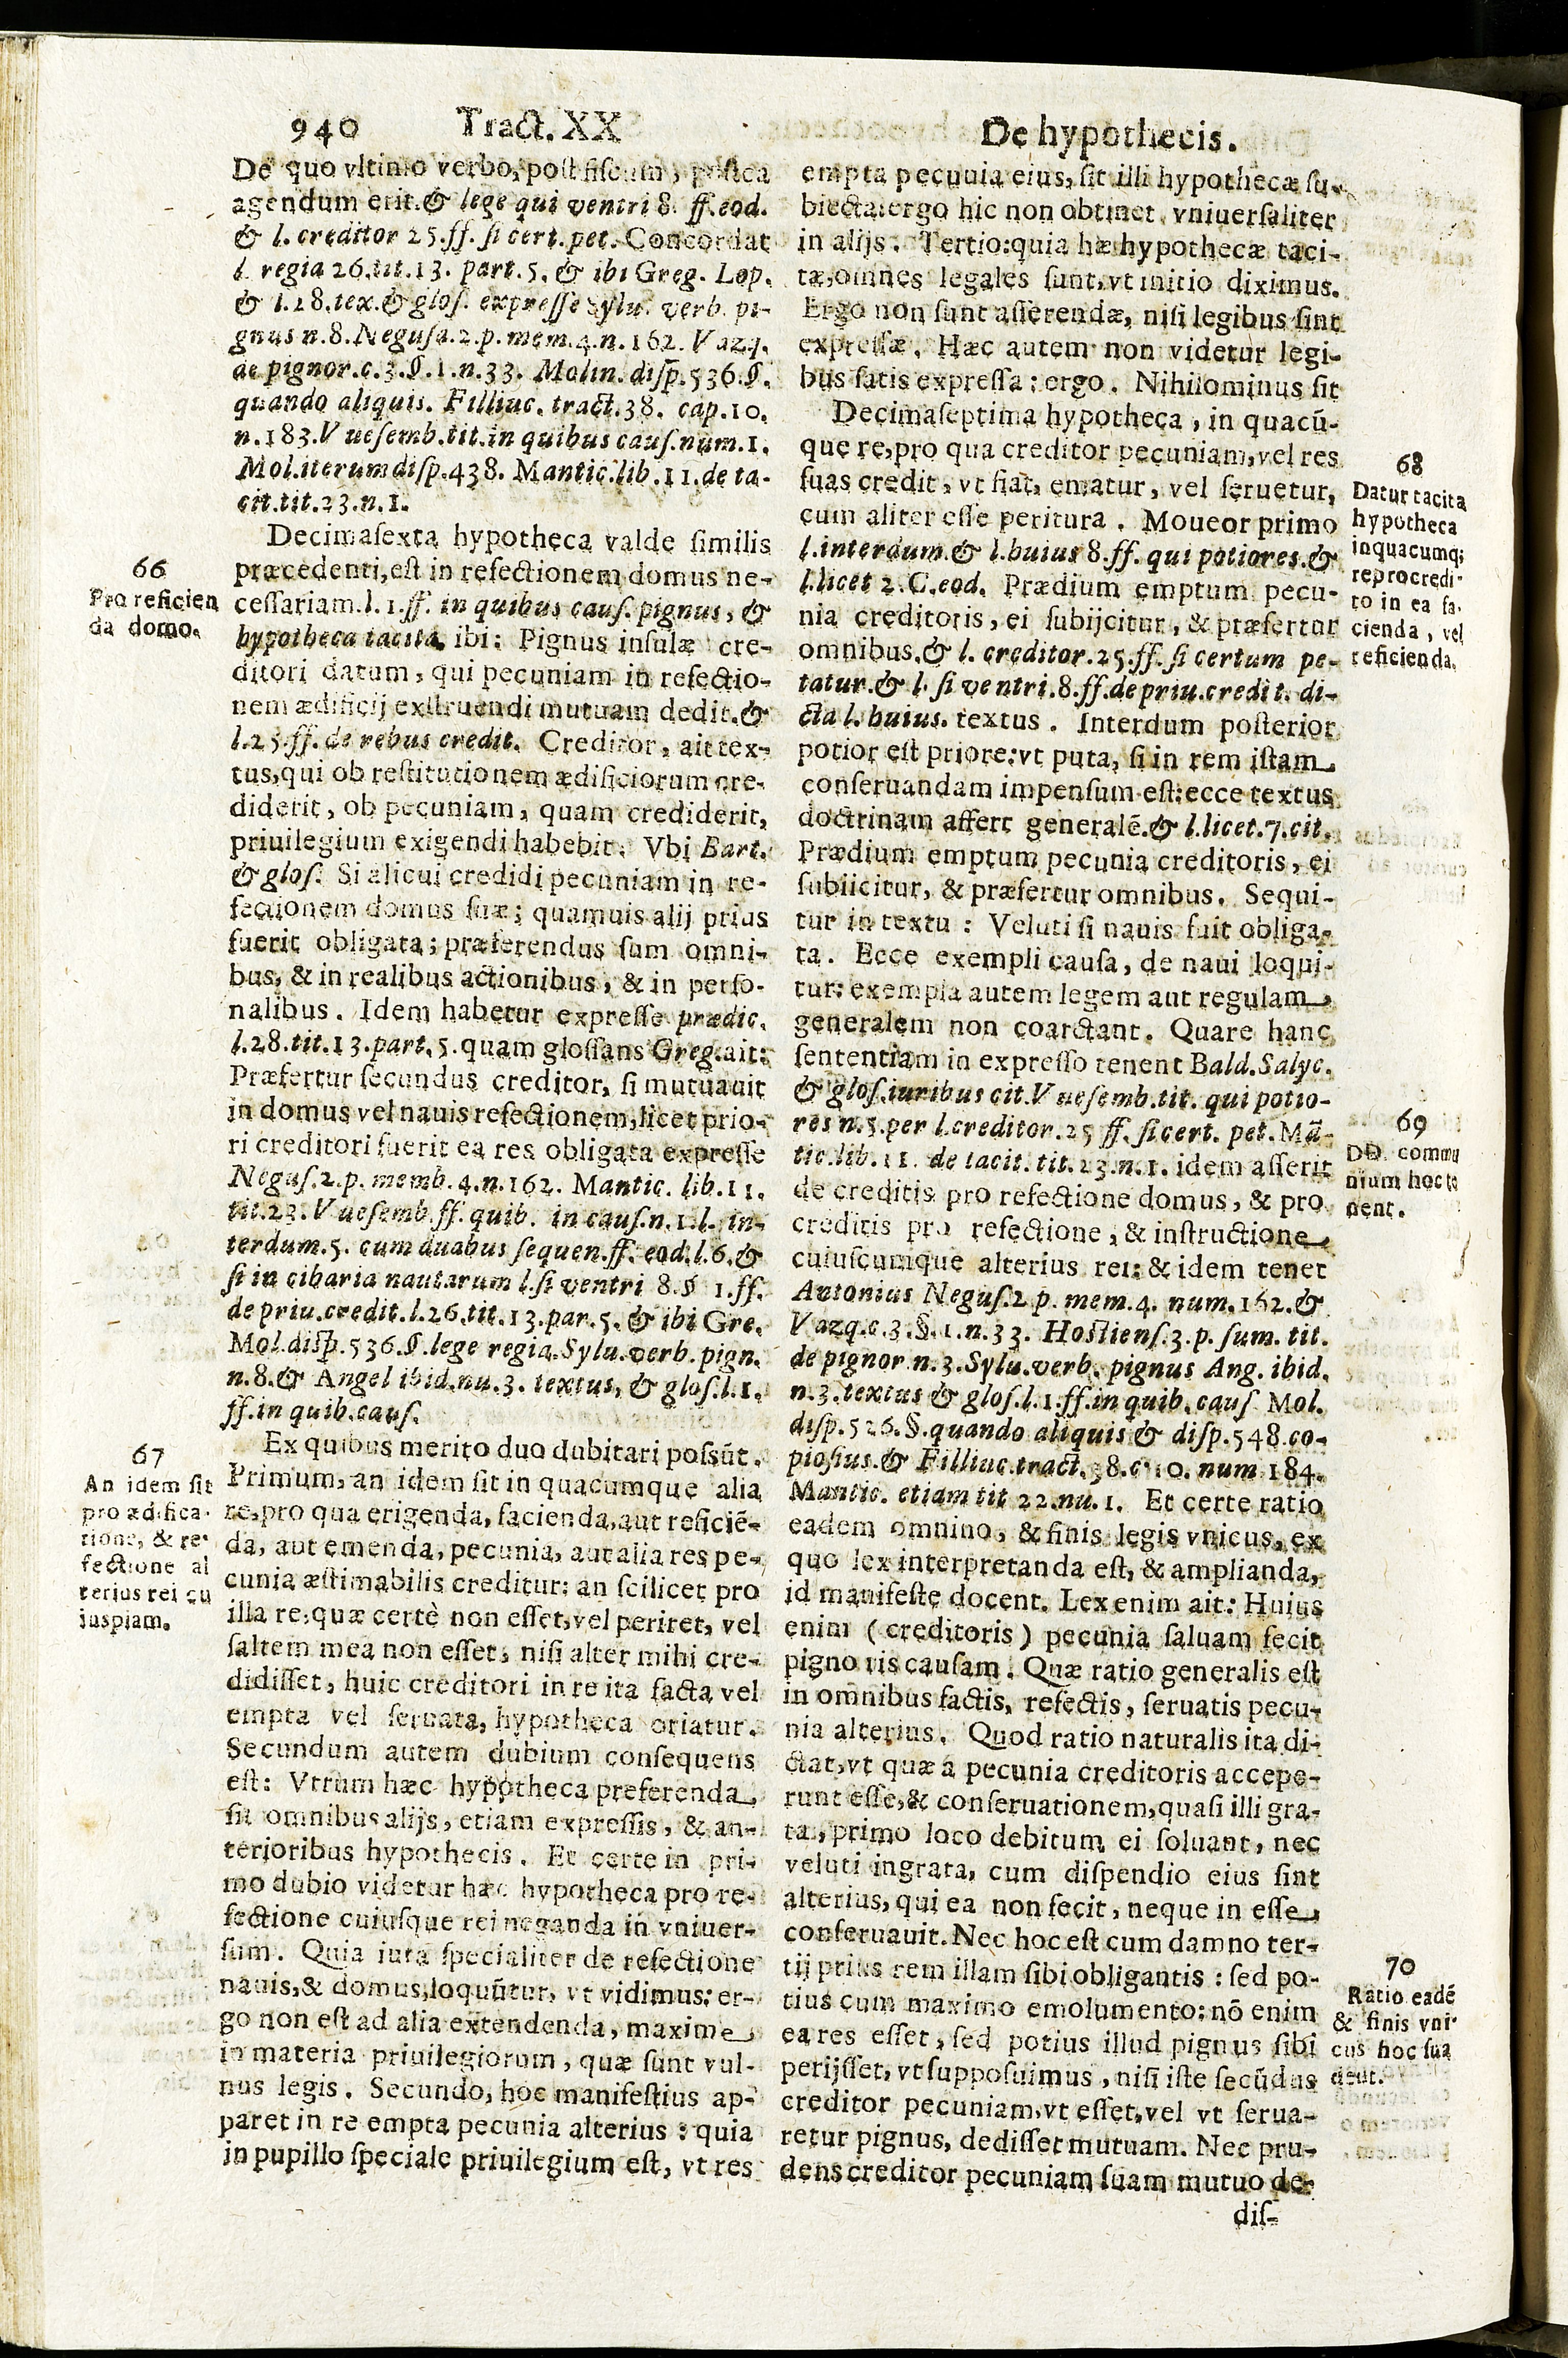 940 Tract. XX De hypothecis.
De quo vltimo verbo, post fiscum, postea
agendum erit. & lege qui ventri 8. ff. eod.
& l. creditor 25. ff. si cert. pet. Concordat
l. regia 26. tit. 13. part. 5. & ibi Greg. Lop.
& l. 28. tex. & glos. expresse Sylu. verb. pi-
gnus n. 8. Negusa. 2. p. mem. 4. n. 162. Vazq.
de pignor. c. 3. §. 1. n. 33. Molin. disp. 536. §.
quando aliquis. Filliuc. tract. 38. cap. 10.
n. 183. Vuesemb. tit. in quibus caus. num. 1.
Mol. iterum disp. 438. Mantic. lib. 11. de ta-
cit. tit. 23. n. 1.
66
Pro reficien
da domo.
Decimasexta hypotheca valde similis
præcedenti, est in refectionem domus ne-
cessariam. l. 1. ff. in quibus caus. pignus, &
hypotheca tacita, ibi: Pignus insulæ cre-
ditori datum, qui pecuniam in refectio-
nem ædificij exstruendi mutuam dedit. &
l. 25. ff. de rebus credit. Creditor, ait tex-
tus, qui ob restitutionem ædificiorum cre-
diderit, ob pecuniam, quam crediderit,
priuilegium exigendi habebit. Vbi Bart.
& glos. Si alicui credidi pecuniam in re-
fectionem domus suæ; quamuis alij prius
fuerit obligata; præferendus sum omni-
bus, & in realibus actionibus, & in perso-
nalibus. Idem habetur expresse prædic.
l. 28. tit. 13. part. 5. quam glossans Greg. ait:
Præfertur secundus creditor, si mutuauit
in domus vel nauis refectionem, licet prio-
ri creditori fuerit ea res obligata expresse
Negus. 2. p. memb. 4. n. 162. Mantic. lib. 11.
tit. 23. Vuesemb. ff. quib. in caus. n. 1. l. in-
terdum. 5. cum duabus sequen. ff. eod. l. 6. &
si in cibaria nautarum l. si ventri 8. § 1. ff.
de priu. credit. l. 26. tit. 13. par. 5. & ibi Gre.
Mol. disp. 536. §. lege regia. Sylu. verb. pign.
n. 8. & Angel ibid. nu. 3. textus, & glos. l. 1.
ff. in quib. caus.
67
An idem sit
pro ædifica-
tione, & re-
fectione al
terius rei cu
iuspiam.
Ex quibus merito duo dubitari possūt.
Primum, an idem sit in quacumque alia
re, pro qua erigenda, facienda, aut reficiē-
da, aut emenda, pecunia, aut alia res pe-
cunia æstimabilis creditur: an scilicet pro
illa re, quæ certè non esset, vel periret, vel
saltem mea non esset, nisi alter mihi cre-
didisset, huic creditori in re ita facta vel
empta vel seruata, hypotheca oriatur.
Secundum autem dubium consequens
est: Vtrum hæc hypotheca preferenda
sit omnibus alijs, etiam expressis, & an-
terioribus hypothecis. Et certe in pri-
mo dubio videtur hæc hypotheca pro re-
fectione cuiusque rei neganda in vniuer-
sum. Quia iura specialiter de refectione
nauis, & domus, loquūtur, vt vidimus: er-
go non est ad alia extendenda, maxime
in materia priuilegiorum, quæ sunt vul-
nus legis. Secundo, hoc manifestius ap-
paret in re empta pecunia alterius: quia
in pupillo speciale priuilegium est, vt res
empta pecunia eius, sit illi hypothecæ su-
biecta: ergo hic non obtinet vniuersaliter
in alijs. Tertio: quia hæ hypothecæ taci-
tæ, omnes legales sunt, vt initio diximus.
Ergo non sunt asserendæ, nisi legibus sint
expressæ. Hæc autem non videtur legi-
bus satis expressa: ergo. Nihilominus sit
68
Datur tacita
hypotheca
in quacumq;
re pro credi-
to in ea fa-
cienda, vel
reficienda.
Decimaseptima hypotheca, in quacū-
que re, pro qua creditor pecuniam, vel res
suas credit, vt fiat, ematur, vel seruetur,
cum aliter esse peritura. Moueor primo
l. interdum. & l. huius 8. ff. qui potiores. &
l. licet 2. C. eod. Prædium emptum pecu-
nia creditoris, ei subijcitur, & præfertur
omnibus. & l. creditor. 25. ff. si certum pe-
tatur. & l. si ventri. 8. ff. de priu. credit. di-
cta l. huius. textus. Interdum posterior
potior est priore: vt puta, si in rem istam
conseruandam impensum est: ecce textus
doctrinam affert generalē. & l. licet. 7. cit.
Prædium emptum pecunia creditoris, ei
subiicitur, & præfertur omnibus. Sequi-
tur in textu: Veluti si nauis fuit obliga-
ta. Ecce exempli causa, de naui loqui-
tur: exempla autem legem aut regulam
generalem non coarctant. Quare hanc
sententiam in expresso tenent Bald. Salyc.
& glos. iuribus cit. Vuesemb. tit. qui potio-
res n. 5. per l. creditor. 25 ff. si cert. pet. Mā-
tic. lib. 11. de tacit. tit. 23. n. 1. idem asserit
69
DD. commu
nium hoc te
nent.
de creditis pro refectione domus, & pro
creditis pro refectione, & instructione
cuiuscumque alterius rei: & idem tenet
Antonius Negus. 2. p. mem. 4. num. 162. &
Vazq. c. 3. §. 1. n. 33. Hostiens. 3. p. sum. tit.
de pignor n. 3. Sylu. verb. pignus Ang. ibid.
n. 3. textus & glos. l. 1. ff. in quib. caus Mol.
disp. 526. §. quando aliquis & disp. 548. co-
piosius. & Filliuc. tract. 38. c. 10. num 184.
Mantic. etiam tit 22. nu. 1. Et certe ratio
eadem omnino, & finis legis vnicus, ex
quo lex interpretanda est, & amplianda,
id manifeste docent. Lex enim ait: Huius
enim (creditoris) pecunia saluam fecit
pignoris causam. Quæ ratio generalis est
in omnibus factis, refectis, seruatis pecu-
nia alterius. Quod ratio naturalis ita di-
ctat, vt quæ a pecunia creditoris accepe-
runt esse, & conseruationem, quasi illi gra-
ta, primo loco debitum ei soluant, nec
veluti ingrata, cum dispendio eius sint
alterius, qui ea non fecit, neque in esse
conseruauit. Nec hoc est cum damno ter-
tij prius rem illam sibi obligantis: sed po-
70
Ratio eadē
& finis vni-
cus hoc sua
dent.
tius cum maximo emolumento: nō enim
ea res esset, sed potius illud pignus sibi
perijsset, vt supposuimus, nisi iste secūdus
creditor pecuniam, vt esset, vel vt serua-
retur pignus, dedisset mutuam. Nec pru-
dens creditor pecuniam suam mutuo de-
dis-